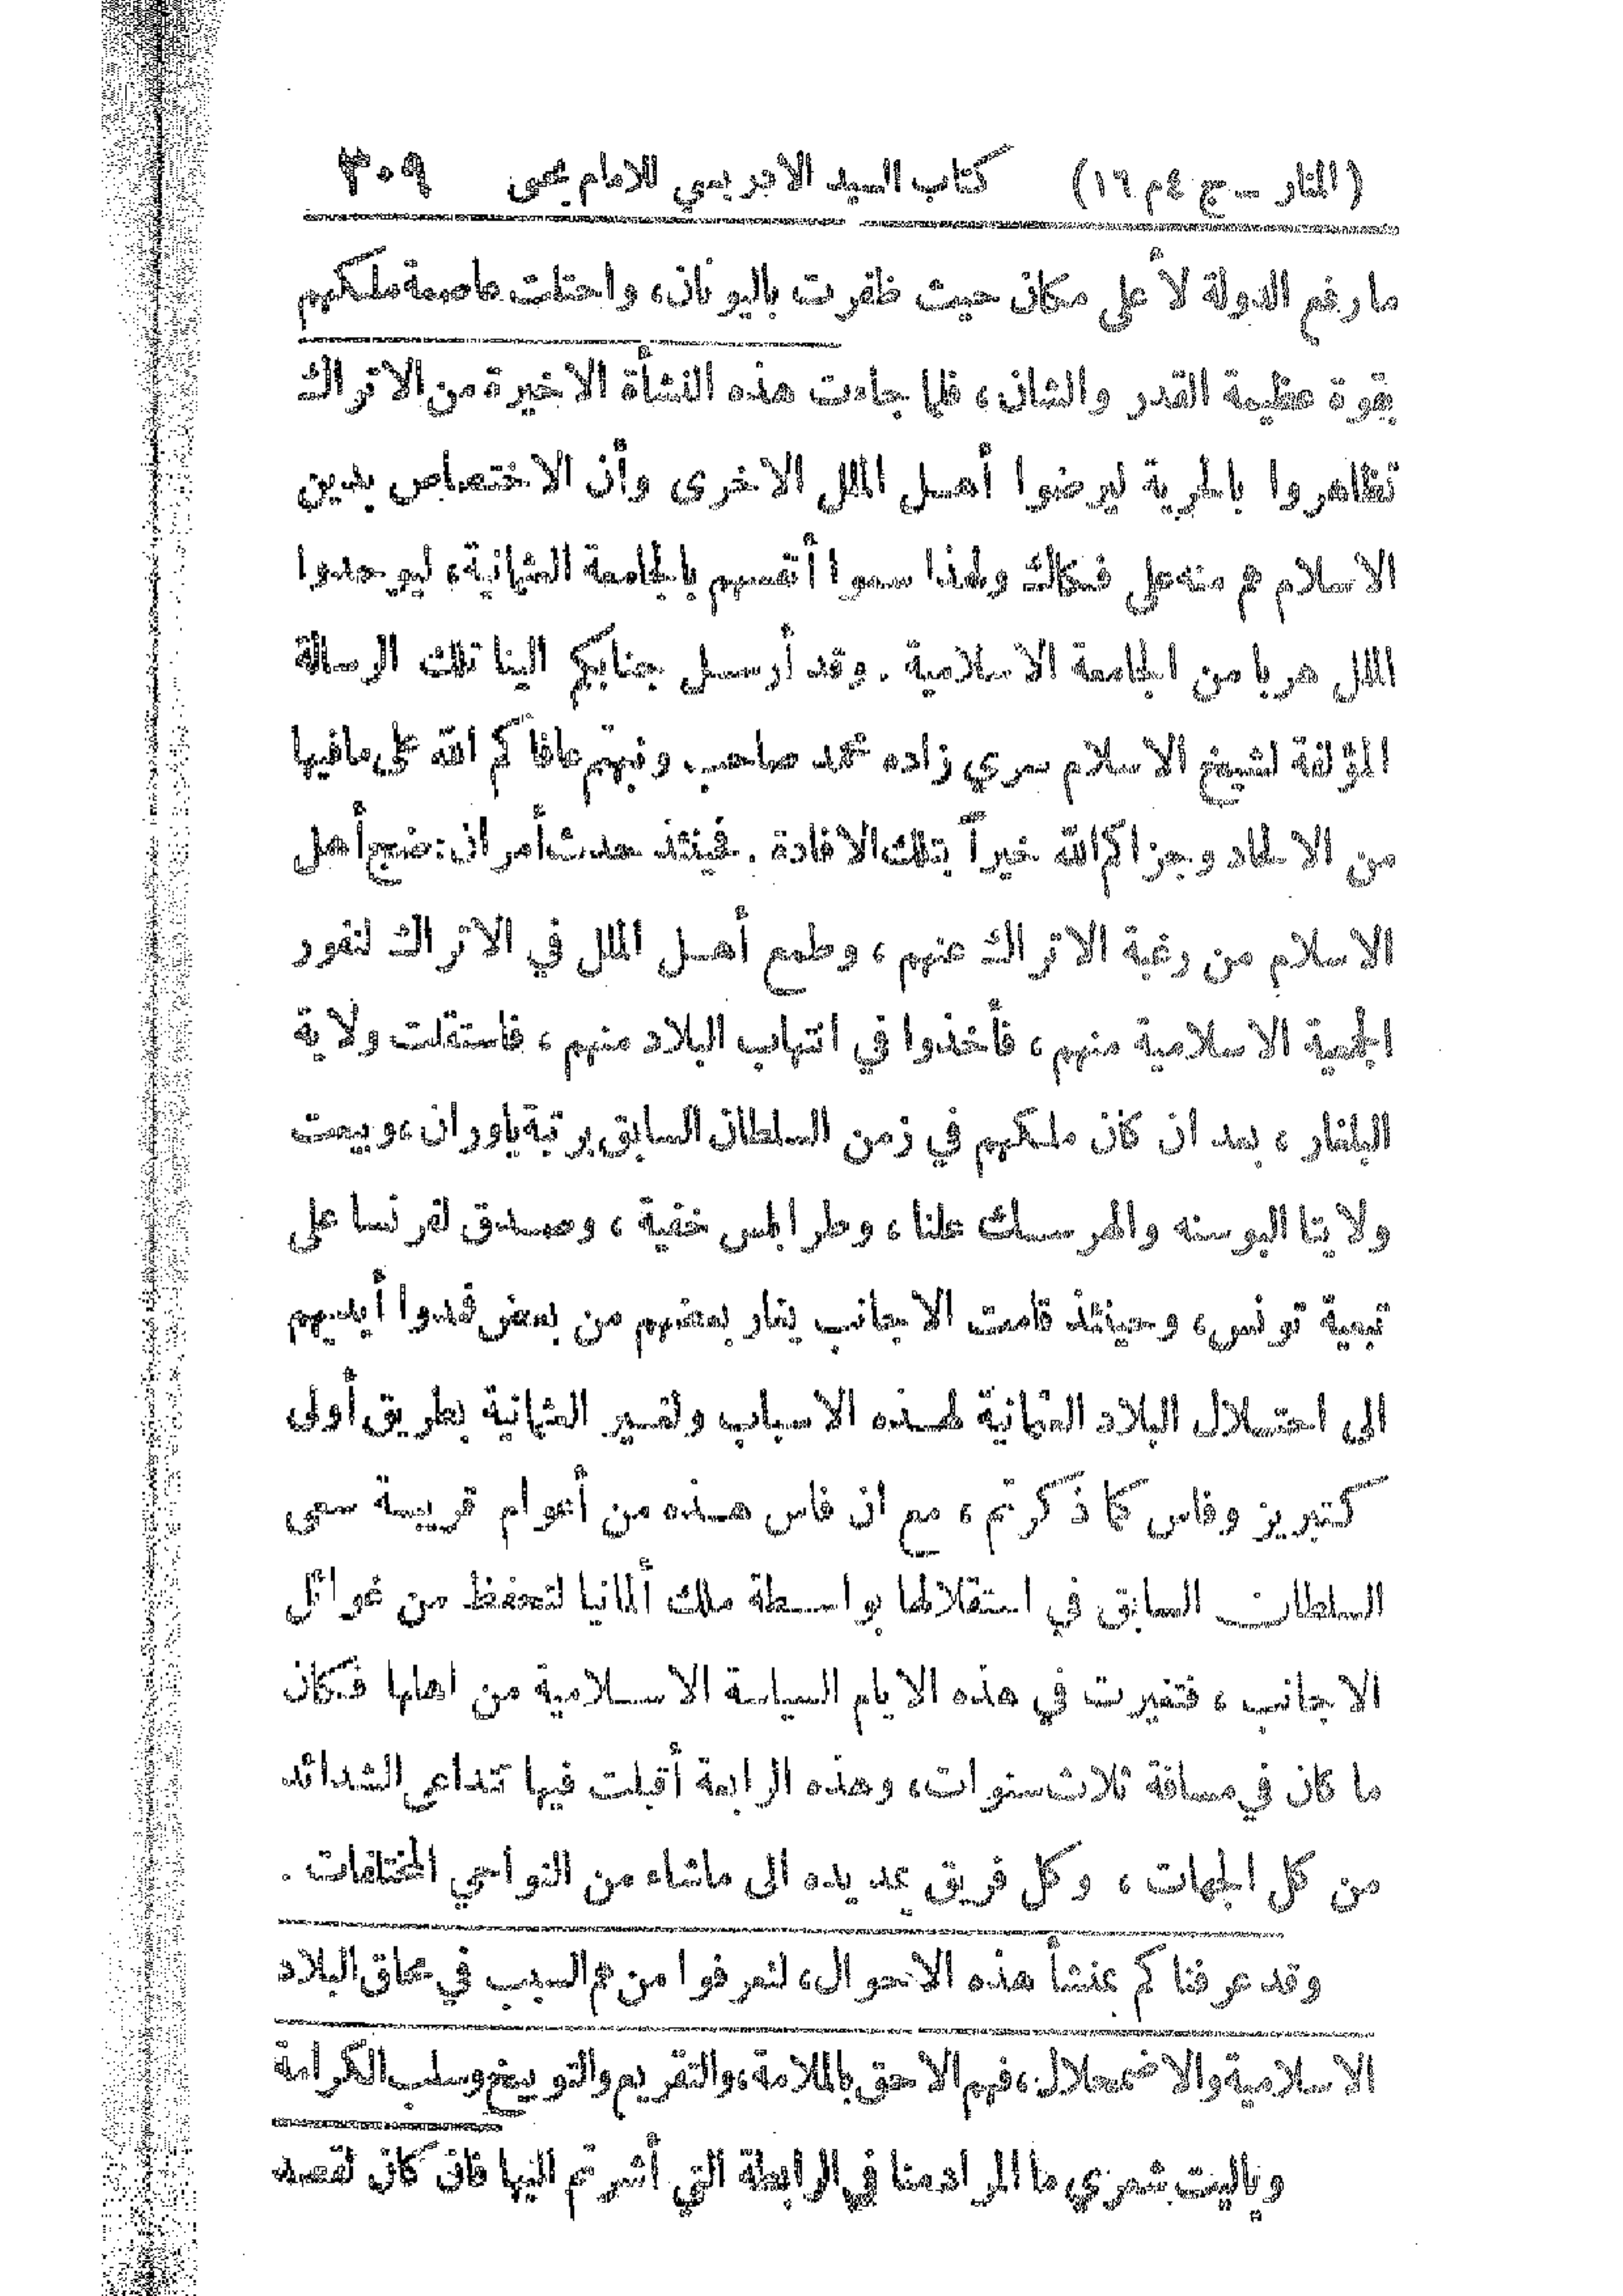 (المنار – ج ٤ م ١٦) كتاب السيد الادريسي للامام يحيى ٣٠٩
ما رفع الدولة لأعلى مكان حيث ظفرت باليونان، واحتلت عاصمة ملكهم
بقوة عظيمة القدر والشان، فلما جاءت هذه النشأة الاخيرة من الاتراك
تظاهروا بالحرية ليرضوا أهل الملل الاخرى وأن الاختصاص بدين
الاسلام هم منه على فكاك ولهذا سموا أنفسهم بالجامعة العثمانية، ليوحدوا
الملل هربا من الجامعة الاسلامية. وقد أرسل جنابكم الينا تلك الرسالة
المؤلفة لشيخ الاسلام سري زاده محمد صاحب ونبهتم عافاكم الله على مافيها
من الالحاد وجزاكم الله خيراً بتلك الافادة. فحينئذ حدث أمران: ضج أهل
الاسلام من رغبة الاتراك عنهم، وطمع أهل الملل في الاتراك لنفور
الجمعية الاسلامية منهم، فأخذوا في انتهاب البلاد منهم، فاستقلت ولاية
البلغار، بعد ان كان ملكهم في زمن السلطان السابق برتبة ياوران، وبيعت
ولايتا البوسنه والهرسك علنا، وطرابلس خفية، وصدق لفرنسا على
تبعية تونس، وحينئذ قامت الاجانب يغار بعضهم من بعض فمدوا أيديهم
الى احتلال البلاد العثمانية لهذه الاسباب ولغير العثمانية بطريق أولى
كتبريز وفاس كما ذكرتم، مع ان فاس هذه من أعوام قريبة سعى
السلطان السابق في استقلالها بواسطة ملك ألمانيا لتحفظ من غوائل
الاجانب، فتغيرت في هذه الايام السياسة الاسلامية من اهلها فكان
ما كان في مسافة ثلاث سنوات، وهذه الرابعة أقبلت فيها تداعى الشدائد
من كل الجهات، وكل فريق يمد يده الى ماشاء من النواحي المختلفات.
وقد عرفناكم عنشأ هذه الاحوال، لتعرفوا من هم السبب في محاق البلاد
الاسلامية والاضمحلال، فهم الاحق بالملامة، والتقريع والتوبيخ وسلب الكرامة
وياليت شعري ما المراد منا في الرابطة التي أشرتم اليها فان كان لقصد